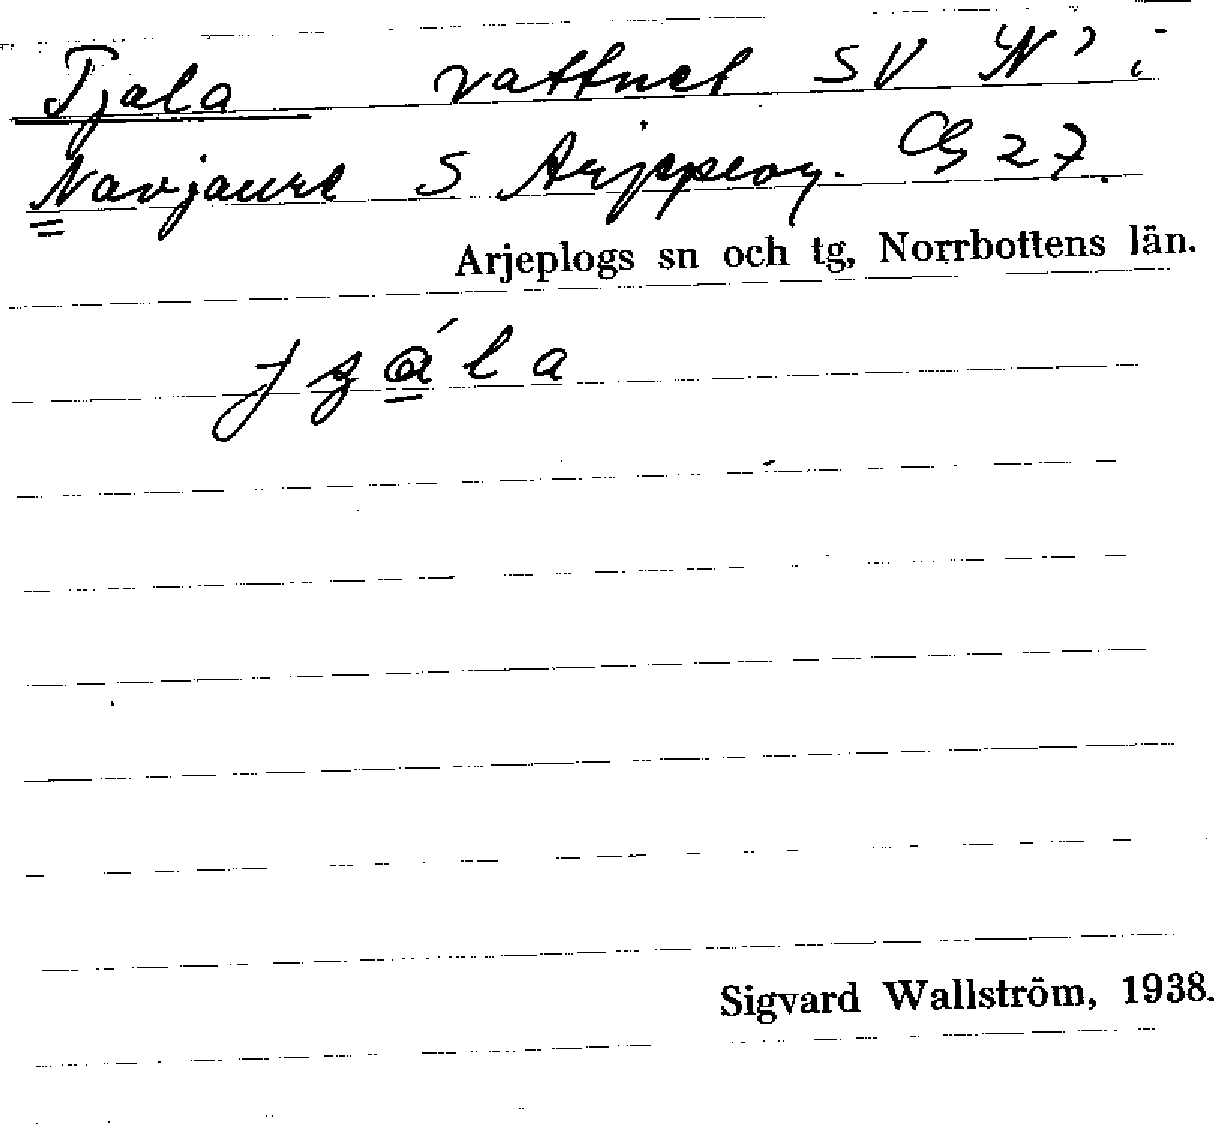 Tjala vattnet SV N' i
Navjaure S Arjeplog. GG 27.
Arjeplogs sn och tg, Norrbottens län.
Sigvard Wallström, 1938.